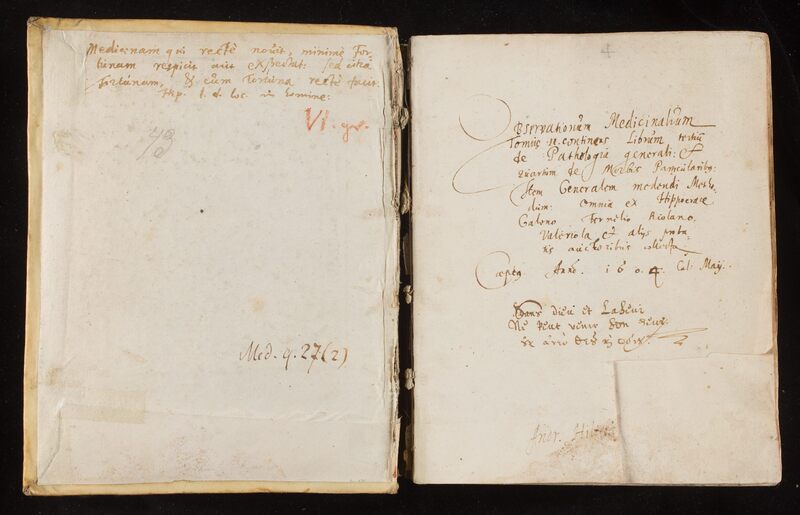 Medicinam qui rectè novit, minimè For-
tunam respicit aut expectat: sed citra
Fortunam, & cum Fortuna rectè faciet.
Hip. l. d. loc. in homine:
VI. qv.
43
Med. q. 27 (2)
4
Observationum Medicinalium
Tomus II. continens Librum tertiũ
de Pathologia generali: &
Quartum de Morbis Particularibq:
Item Generalem medendi Metho-
dum: Omnia ex Hippocrate
Galeno Fernelio Riolano
Valeriola et alijs proba-
tis auctoribus collecta
Cœpta Anno. 1604 Cal: Maij.
Sans dieu et Labeur
Ne peut venir bon
Andr.